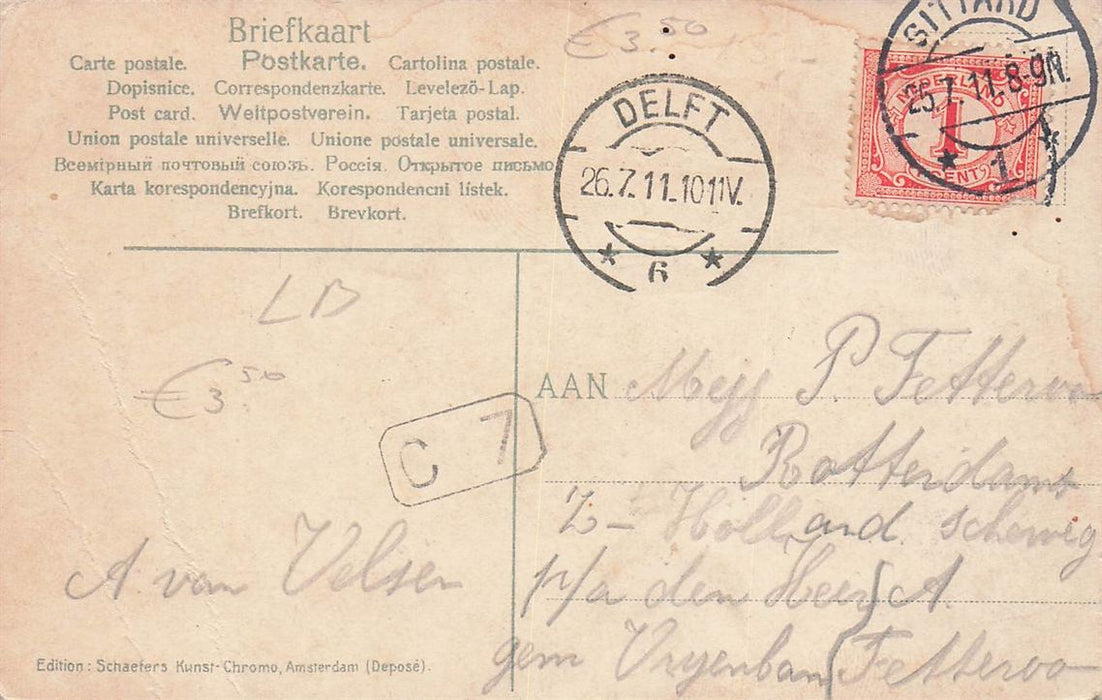 Briefkaart
Postkarte.
Carte postale. Cartolina postale.
Dopisnice. Correspondenzkarte. Levelező-Lap.
Post card. Weltpostverein. Tarjeta postal.
Union postale universelle. Unione postale universale.
Всемірный почтовый союзъ. Россія. Открытое письмо
Karta korespondencyjna. Korespondencni lístek.
Brefkort. Brevkort.
€ 3.50
DELFT
26.7.11.10 11V.
6
SITTARD
25.7.11.8-9N.
1
1
CENT
LB
€ 3.50
C 7
A. van Velsen
AAN Mejf P. Fetteroo
Rotterdams
Z- Holland. scheweg
p/a den Heer A.
gem Vryenban Fetteroo
Edition: Schaefers Kunst-Chromo, Amsterdam (Deposé).